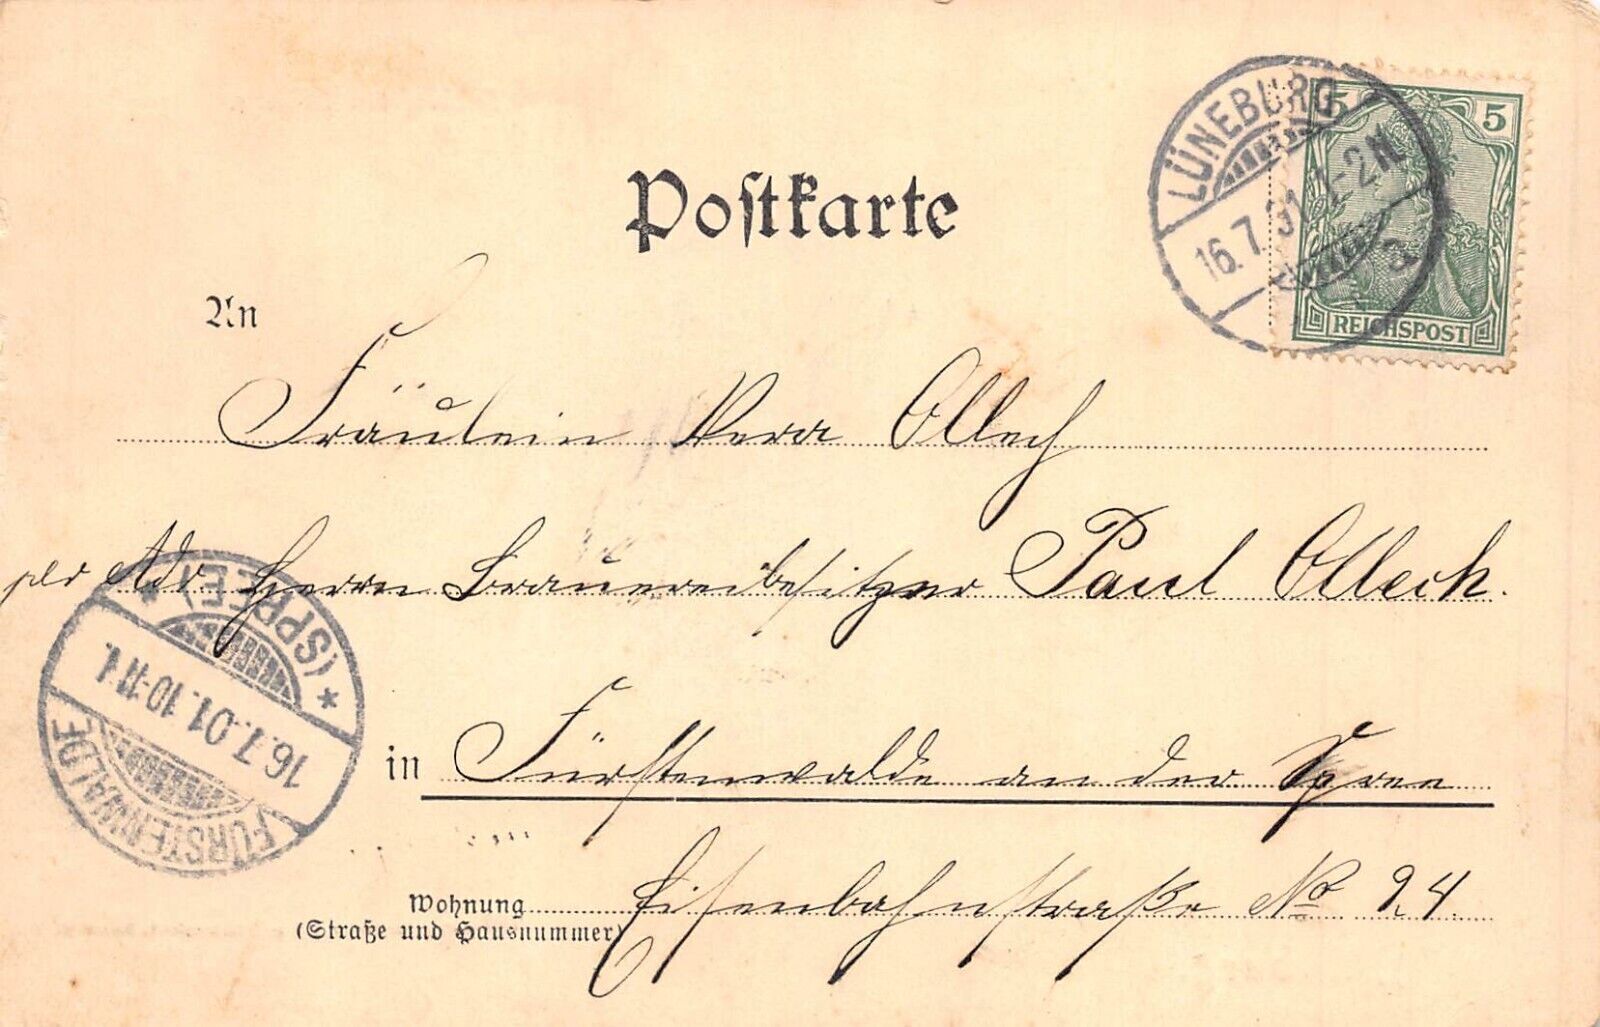 LÜNEBURG
16.7.01. 1-2N.
a
5 5
REICHSPOST
Postkarte
An
Fräulein Vera Ollech
per Adr. Herrn Brauereibesitzer Paul Ollech.
* FÜRSTENWALDE * (SPREE)
16.7.01.10-11V.
in Fürstenwalde an der Spree
Wohnung Eisenbahnstraße No 24.
(Straße und Hausnummer)